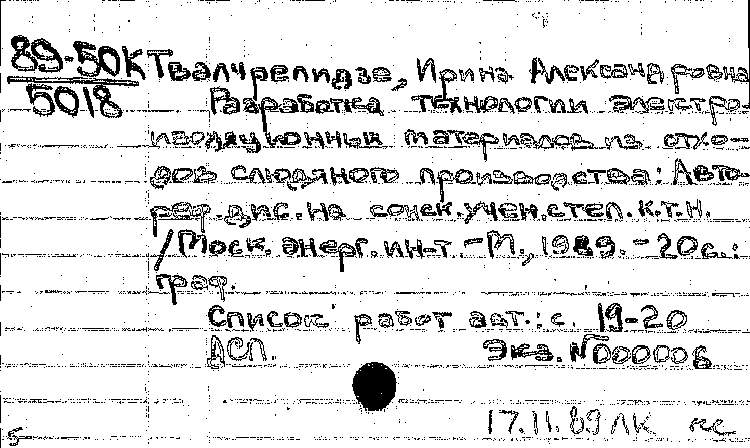 89-50К Твалчрелидзе, Ирина Александровна
5018 Разработка технологии электро-
изоляционных материалов из отхо-
дов слюдяного производства: Авто-
реф. дис. на соиск. учен. степ. к.т.н.
/Моск. энерг. ин-т. - М., 1989. - 20с.:
граф.
Список работ авт.: с. 19-20
ДСП. Экз. №000006
17.11.89 ЛК кс
5